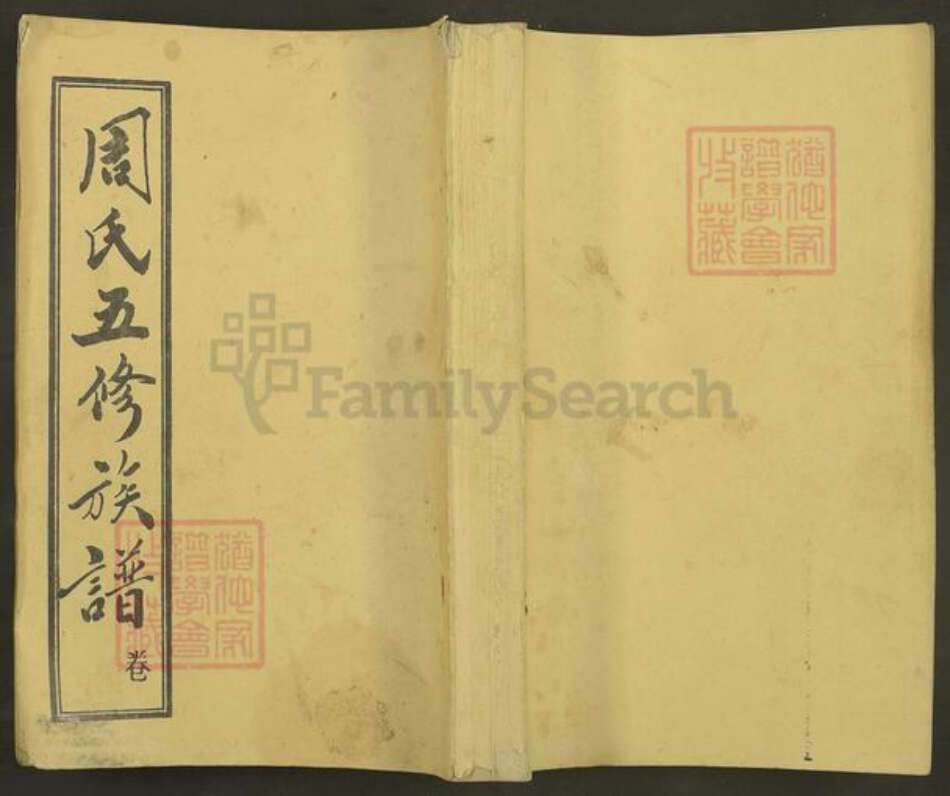 周氏五修族譜
卷
猶他家
譜學會
收藏
猶他家
譜學會
收藏
FamilySearch